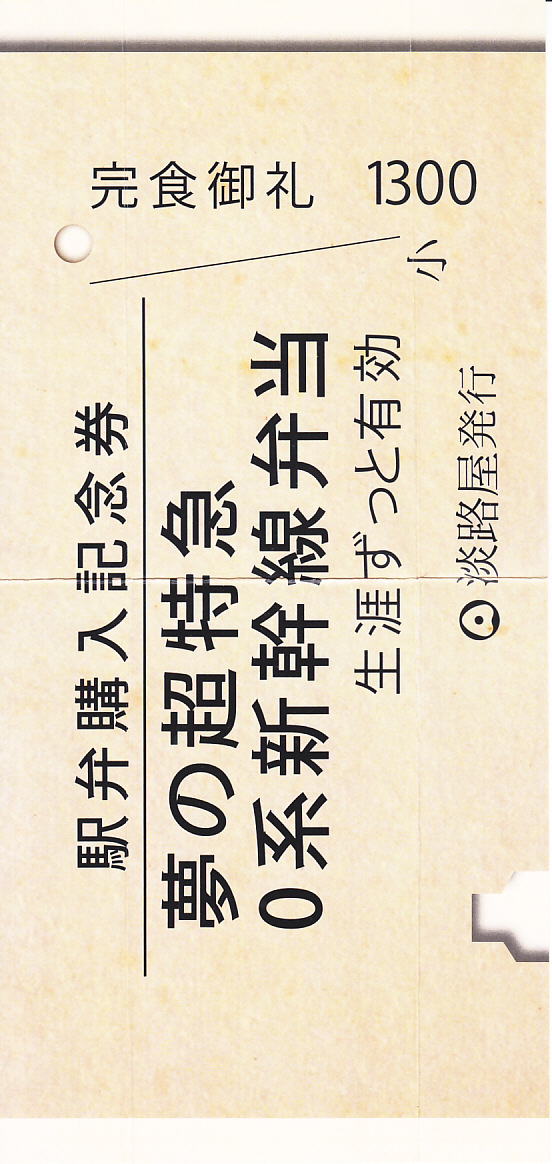 駅弁購入記念券
夢の超特急
0系新幹線弁当
生涯ずっと有効
淡路屋発行
小
完食御礼 1300